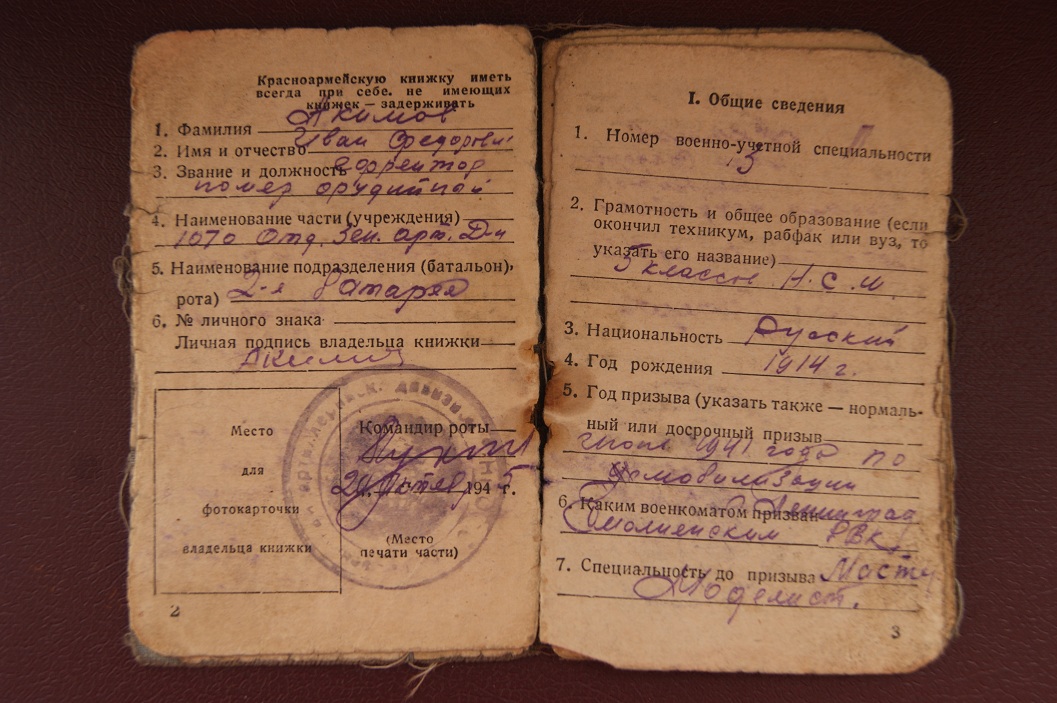 Красноармейскую книжку иметь
всегда при себе. не имеющих
книжек — задерживать
1. Фамилия Акимов
2. Имя и отчество Иван Федорович
3. Звание и должность ефрейтор
номер орудийной
4. Наименование части (учреждения)
1070 Отд. Зен. Арт. Д-н
5. Наименование подразделения (батальон),
рота) 2-я батарея
6. № личного знака
Личная подпись владельца книжки
Место
для
фотокарточки
владельца книжки
Командир роты
194 5 г.
(Место
печати части)
2
I. Общие сведения
1. Номер военно-учетной специальности
13
2. Грамотность и общее образование (если
окончил техникум, рабфак или вуз, то
указать его название)
5 классов Н.С.Ш.
3. Национальность Русский
4. Год рождения 1914 г.
5. Год призыва (указать также — нормаль-
ный или досрочный призыв
1941 года по
мобилизации
6. Каким военкоматом призван Ленинград
РВК
7. Специальность до призыва
Моделист.
3